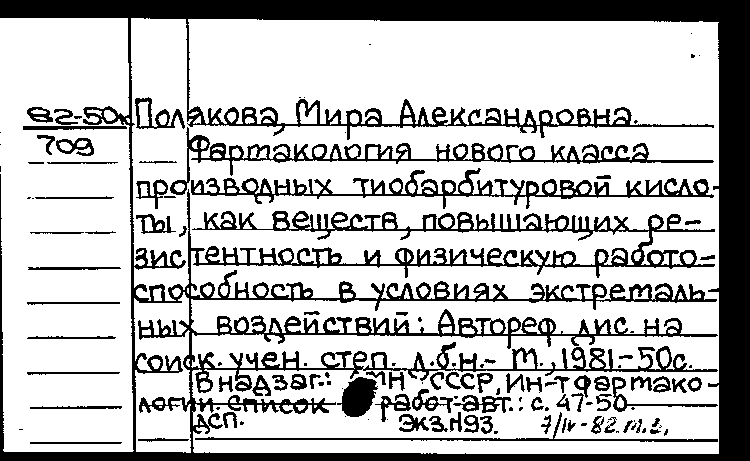 82-50к Полякова, Мира Александровна.
709 Фармакология нового класса
производных тиобарбитуровой кисло-
ты, как веществ, повышающих ре-
зистентность и физическую работо-
способность в условиях экстремаль-
ных воздействий: Автореф. дис. на
соиск. учен. степ. д.б.н.- М., 1981.-50с.
В надзаг.: АМН СССР, Ин-т фармако-
логии. список работ авт.: с. 47-50.
ДСП. Экз.№93. 7/IV-82.